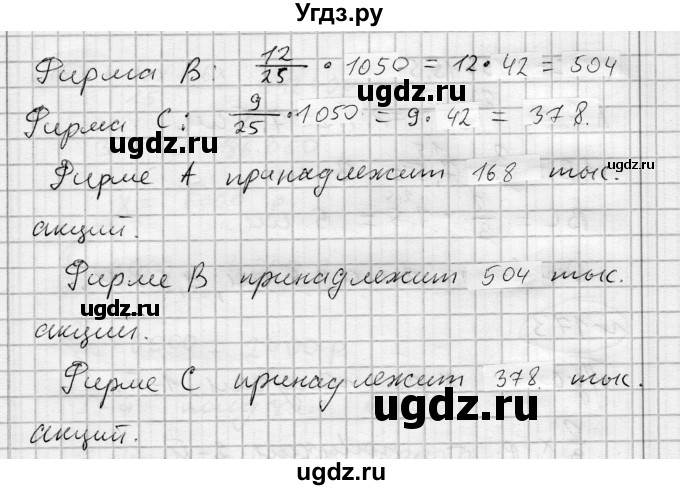 Угдз.ру
Фирма B: 12/25 • 1050 = 12 • 42 = 504
ugdz.ru
Фирма C: 9/25 • 1050 = 9 • 42 = 378.
ugdz.ru
ugdz.ru
Фирме A принадлежит 168 тыс.
акций.
ugdz.ru
Фирме B принадлежит 504 тыс.
ugdz.ru
акций.
Фирме C принадлежит 378 тыс.
ugdz.ru
акций.
ugdz.ru
ugdz.ru